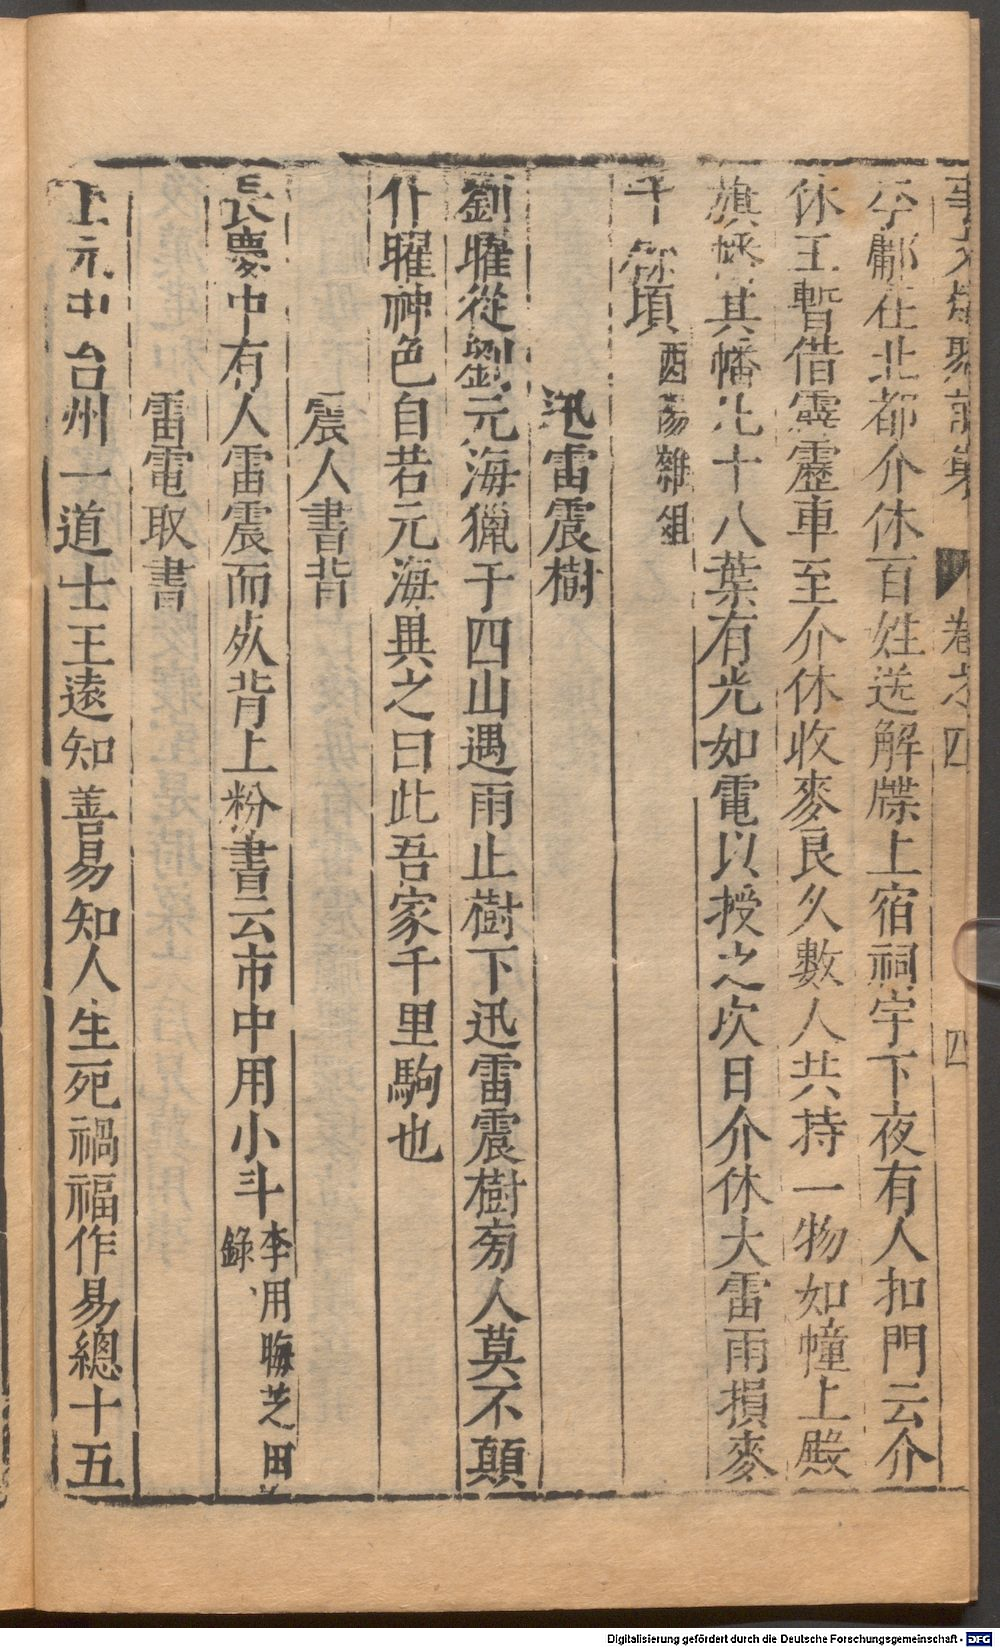 事文類聚前集 卷之四 四
李鄘在北都介休百姓送解牒上宿祠宇下夜有人扣門云介
休王暫借霹靂車至介休收麥良久數人共持一物如幢上毀
旗旛其幡凡十八葉有光如電以授之次日介休大雷雨損麥
千餘頃 酉陽雜俎
迅雷震樹
劉曜從劉元海獵于四山遇雨止樹下迅雷震樹旁人莫不顛
仆曜神色自若元海異之曰此吾家千里駒也
震人書背
長慶中有人雷震而死背上粉書云市中用小斗 李用晦芝田
錄
雷電取書
上元中台州一道士王遠知善易知人生死禍福作易總十五
Digitalisierung gefördert durch die Deutsche Forschungsgemeinschaft - DFG